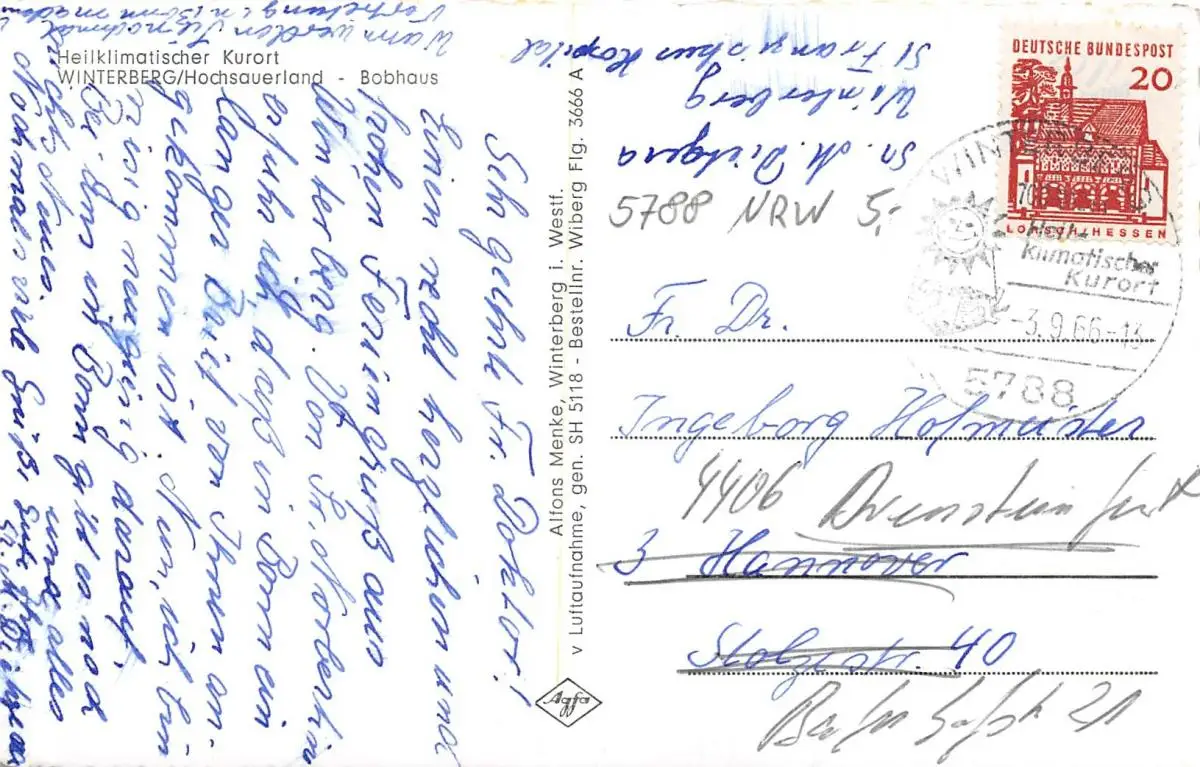 Heilklimatischer Kurort
WINTERBERG/Hochsauerland - Bobhaus
Sehr geehrte Fr. Doktor!
Einen recht herzlichen und
frohen Feriengruß aus
Winterberg. Von Sr. Norberta
erfuhr ich, daß in Bonn ein
langer Brief von Ihnen an-
gekommen ist. Nun, ich bin
riesig neugierig darauf.
Bei uns in Bonn gibt es noch
nichts Neues.
Wann werden Sie nochmal
Vertretung in Bonn machen
Nochmals viele Grüße
Alfons Menke, Winterberg i. Westf.
v Luftaufnahme, gen. SH 5118 - Bestellnr. Wiberg Flg. 3666 A
Agfa
Sr. M. Dietgera
Winterberg
St Franziskus Hospital
5788 NRW 5,-
DEUTSCHE BUNDESPOST
20
LORSCH/HESSEN
WINTERBERG
Heil-
klimatischer
Kurort
-3.9.66-13
5788
Fr. Dr.
Ingeborg Hofmeister
4406 Drensteinfurt
3 Hannover
Stolzestr. 40
21